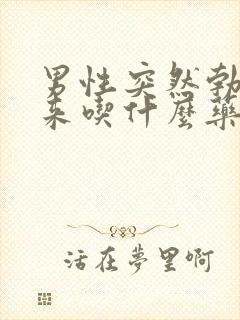 男性突然勃
来喫什麼藥
活在夢里啊